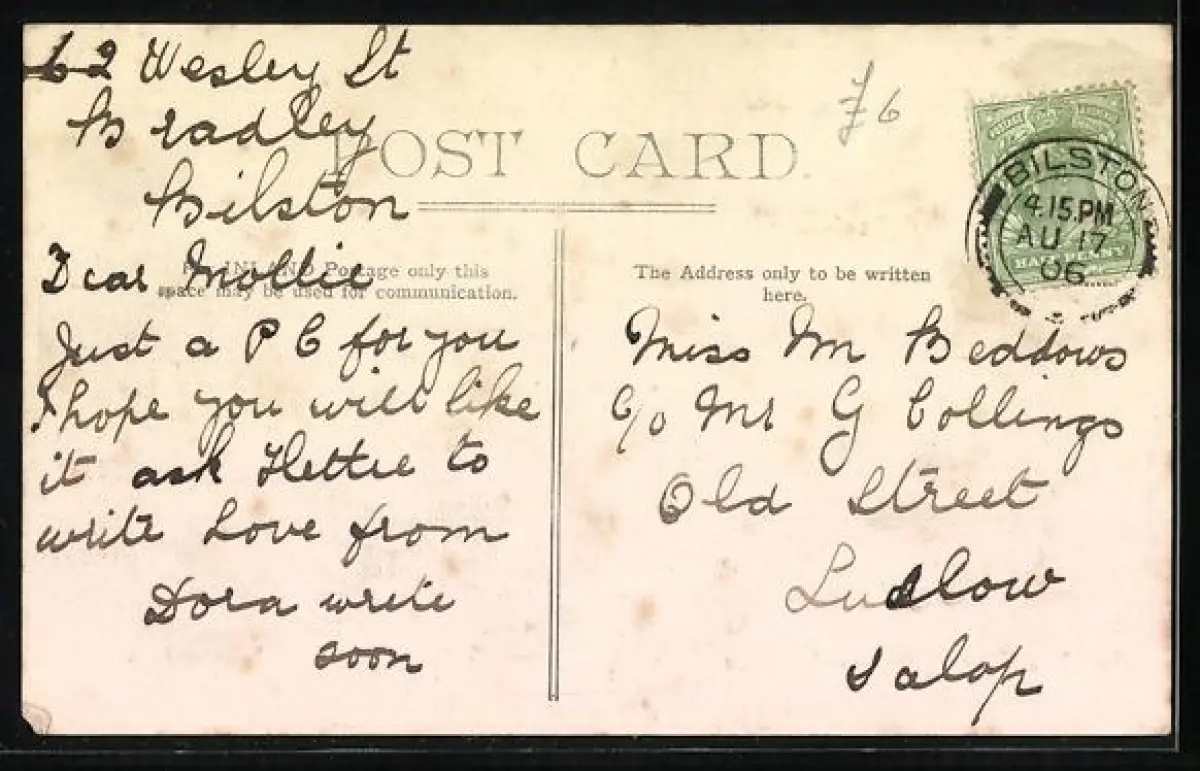 62 Wesley St
Bradley
Bilston
POST CARD.
Dear Mollie
For INLAND Postage only this
space may be used for communication.
Just a P C for you
I hope you will like
it ask Hettie to
write Love from
Dora write
soon
The Address only to be written
here.
BILSTON
4.15.PM
AU 17
06
HALFPENNY
Miss M Beddows
c/o Mr G Collings
Old Street
Ludlow
Salop